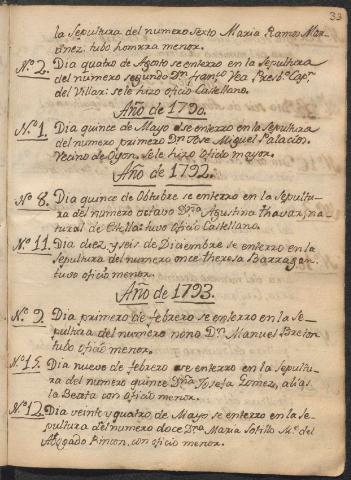 33
la Sepultura del numero Sexto Maria Ramos Mar-
tinez; tubo honrra menor.
N.º 2. Dia quatro de Agosto se enterro en la Sepultura
del numero segundo Dn. franco. Vea Presbo. Capn.
del Villar: se le hizo oficio Castellano.
Año de 1790.
N.º 1. Dia quince de Mayo se enterro en la Sepultura
del numero primero Dn. Jose Miguel Palacion.
Vecino de Oyon. se le hizo oficio mayor.
Año de 1792.
N.º 8. Dia quince de Obtubre se enterro en la Sepultu-
ra del numero octavo Dña. Agustina Chavarri, na-
tural de tubo Oficio Castellano.
N.º 11. Dia diez y seis de Diciembre se enterro en la
Sepultura del numero once theresa Barragan.
tuvo oficio menor.
Año de 1793.
N.º 9. Dia primero de febrero se enterro en la Se-
pultura del numero nono Dn. Manuel Breton
tubo oficio menor.
N.º 15. Dia nueve de febrero se enterro en la Sepultu-
ra del numero quince Dña. Josefa Gomez, alias
la Beata con oficio menor.
N.º 12. Dia veinte y quatro de Mayo se enterro en la Se-
pultura del numero doce Dña. Maria Sotillo Me. del
Abogado Rincon, con oficio menor.